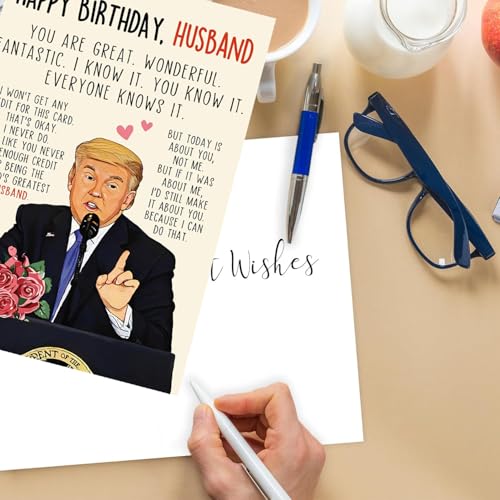 HAPPY BIRTHDAY, HUSBAND
YOU ARE GREAT. WONDERFUL.
FANTASTIC. I KNOW IT. YOU KNOW IT.
EVERYONE KNOWS IT.
I WON'T GET ANY
CREDIT FOR THIS CARD.
THAT'S OKAY.
I NEVER DO.
LIKE YOU NEVER
ENOUGH CREDIT
BEING THE
GREATEST
HUSBAND.
BUT TODAY IS
ABOUT YOU,
NOT ME.
BUT IF IT WAS
ABOUT ME,
I'D STILL MAKE
IT ABOUT YOU.
BECAUSE I CAN
DO THAT.
Wishes
OF THE